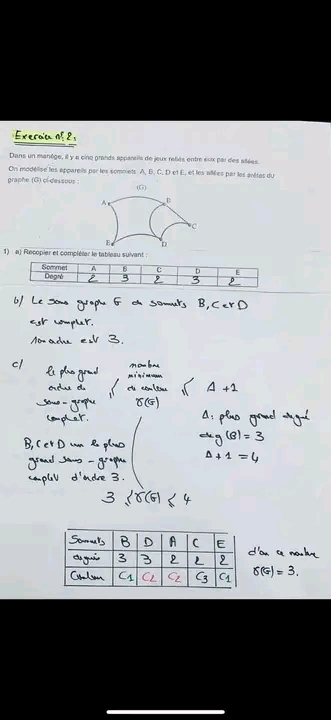 Exercice n° 2 :
Dans un manège, il y a cinq grands appareils de jeux reliés entre eux par des allées.
On modélise les appareils par les sommets A, B, C, D et E, et les allées par les arêtes du
graphe (G) ci-dessous :
(G)
A
B
C
E
D
1) a) Recopier et compléter le tableau suivant :
Sommet A B C D E
Degré 2 3 2 3 2
b/ Le sous graphe G de sommets B, C et D
est complet.
son ordre est 3.
c/
le plus grand ordre de sous-graphe complet. ≤ nombre minimum de couleur γ(G) ≤ Δ + 1
Δ : plus grand degré
deg(B) = 3
Δ + 1 = 4
B, C et D un le plus
grand sous-graphe
complet d'ordre 3.
3 ≤ γ(G) ≤ 4
Sommets B D A C E
degrés 3 3 2 2 2
Couleur C1 C2 C2 C3 C1
d'où ce nombre
γ(G) = 3.